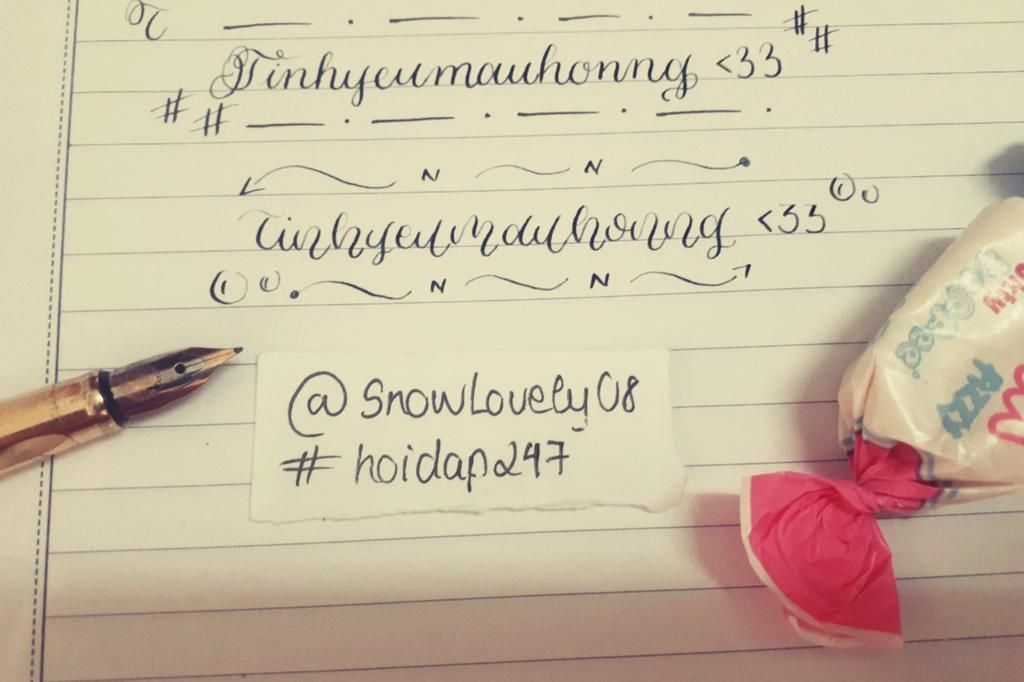 Tinhyeumauhonng <33
Tinhyeumauhonng <33
@SnowLovely08
#hoidap247